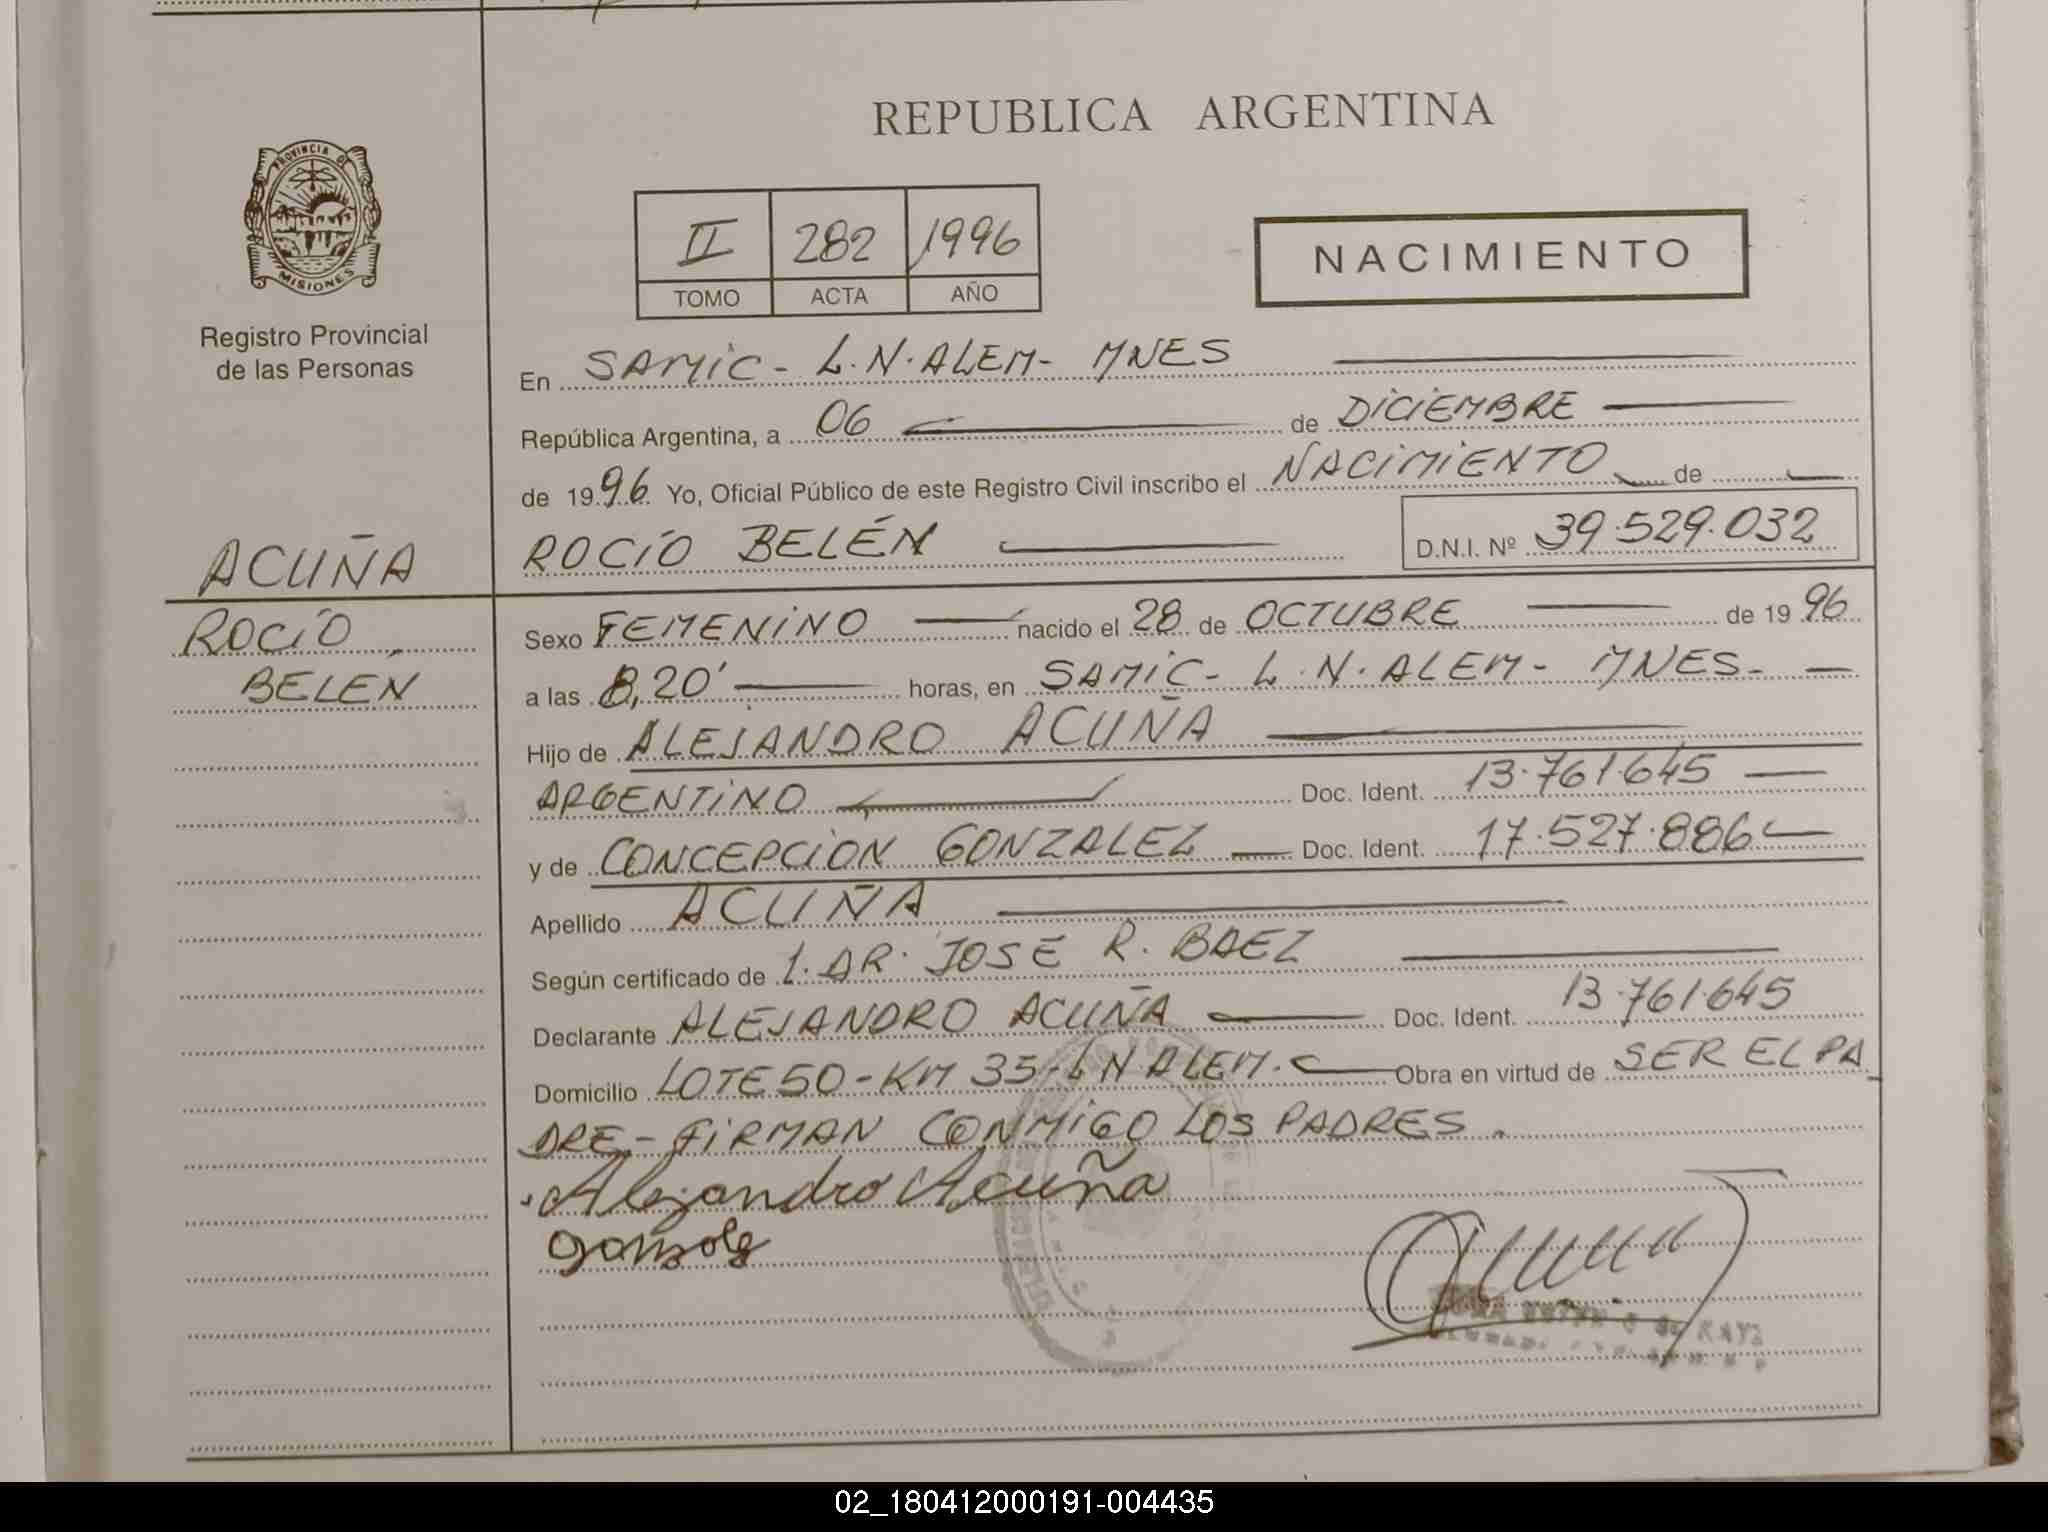 REPUBLICA ARGENTINA
PROVINCIA DE
MISIONES
Registro Provincial
de las Personas
II 282 1996
TOMO ACTA AÑO
NACIMIENTO
En SAMIC - L.N. ALEM - MNES
República Argentina, a 06 de DICIEMBRE
de 1996 Yo, Oficial Público de este Registro Civil inscribo el NACIMIENTO de
ROCÍO BELÉN D.N.I. Nº 39.529.032
ACUÑA
ROCÍO
BELÉN
Sexo FEMENINO nacido el 28 de OCTUBRE de 1996
a las 8,20' horas, en SAMIC - L.N. ALEM - MNES -
Hijo de ALEJANDRO ACUÑA
ARGENTINO Doc. Ident. 13.761.645
y de CONCEPCION GONZALEZ Doc. Ident. 17.527.886
Apellido ACUÑA
Según certificado de JOSE R. BAEZ
Declarante ALEJANDRO ACUÑA Doc. Ident. 13.761.645
Domicilio LOTE 50 - KM 35 - L N ALEM. Obra en virtud de SER EL PA
DRE - FIRMAN CONMIGO LOS PADRES.
Alejandro Acuña
02_180412000191-004435